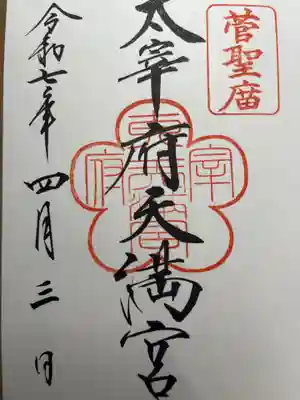 菅聖庿
太宰府天満宮
令和七年四月三日